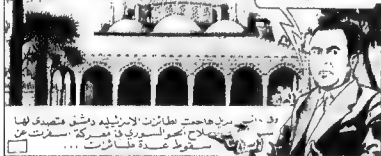 هاجمت الطائرات الاسرائيلية دمشق فتصدى لها
سلاح الجو السوري في معركة اسفرت عن
سقوط عدة طائرات ...